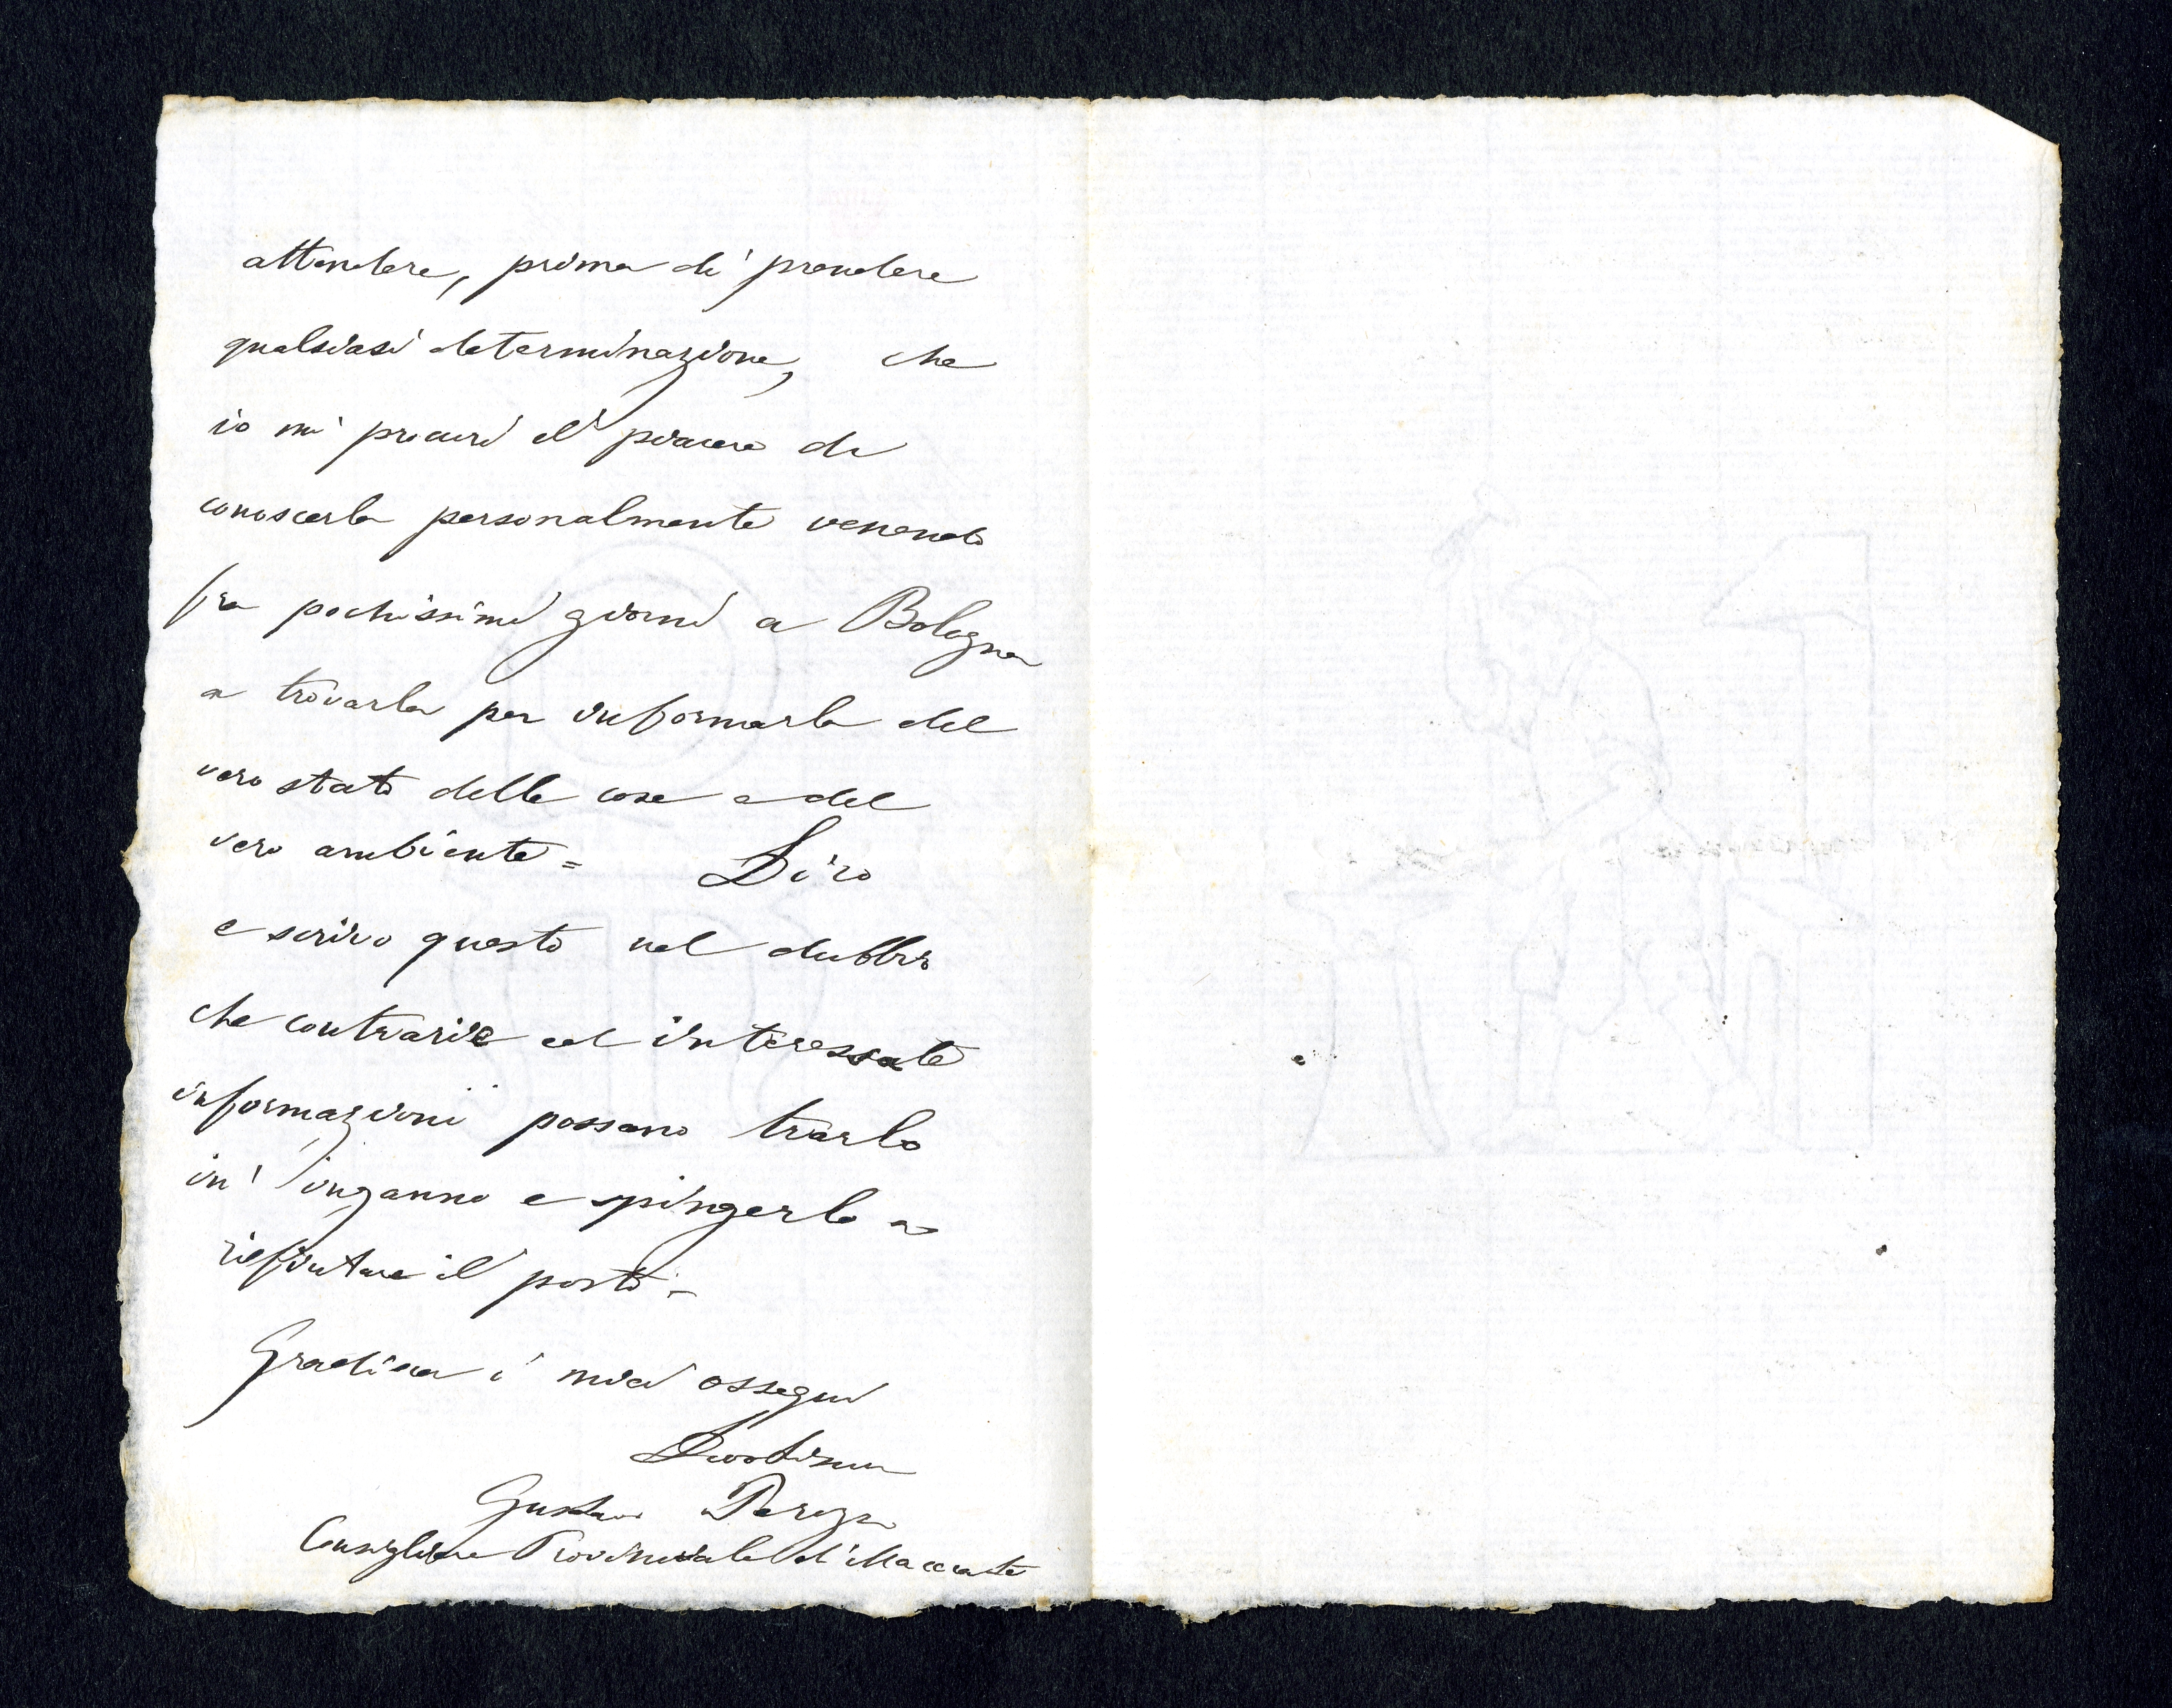 attendere, prima di prendere
qualsiasi determinazione, che
io mi procuri il piacere di
conoscerla personalmente venendo
fra pochissimi giorni a Bologna
a trovarla per informarla del
vero stato delle cose e del
vero ambiente =   Dico
e scrivo questo nel dubbio
che contrarie ed interessate
informazioni possano trarlo
in inganno e spingerlo a
rifiutare il posto. -
Gradisca i miei ossequi
Devotissimo
Gustavo
Consigliere Provinciale di Macerata